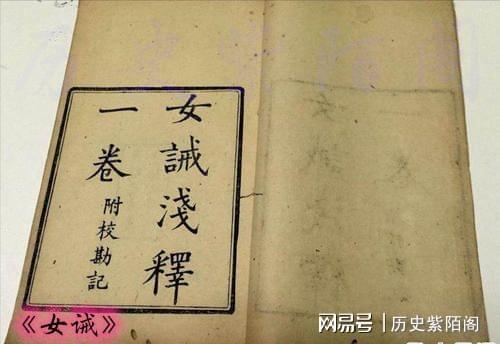 女誡淺釋
一卷
附校勘記
《女诫》
网易号 | 历史紫陌阁